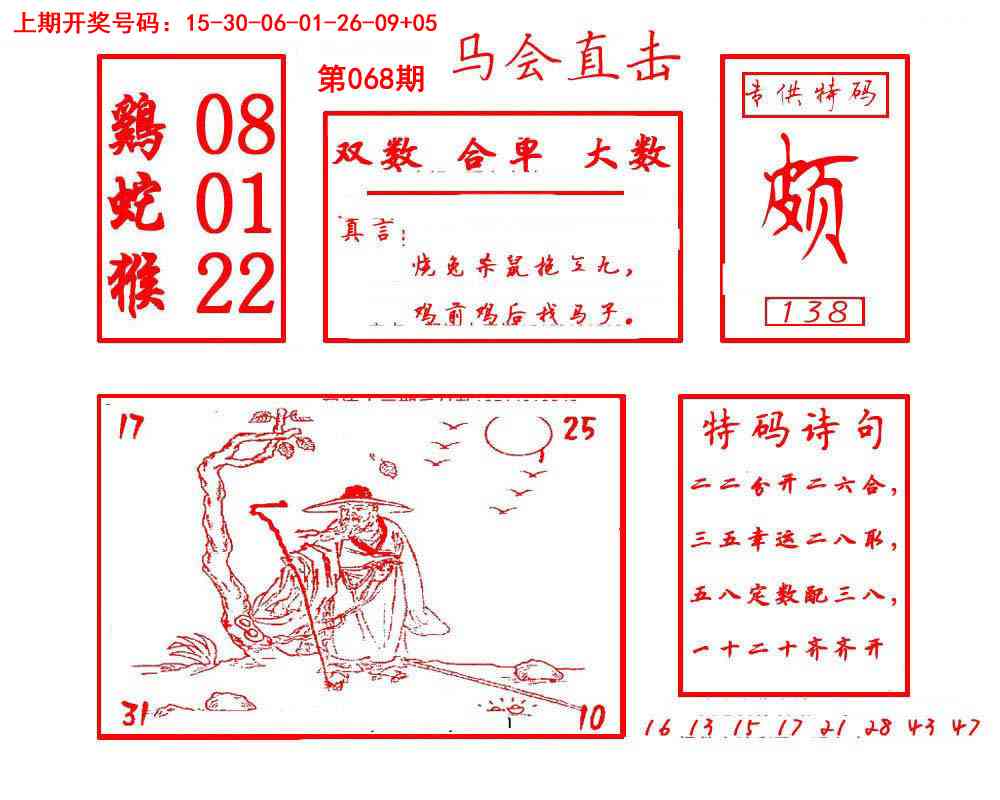 上期开奖号码：15-30-06-01-26-09+05
马会直击
第068期
鷄 08
蛇 01
猴 22
双数 合单 大数
真言：
烧兔杀鼠拖三九，
鸡前鸡后找马子。
专供特码
颇
138
17
25
31
10
1
特码诗句
二二分开二六合，
三五幸运二八取，
五八定数配三八，
一十二十齐齐开
16 13 15 17 21 28 43 47